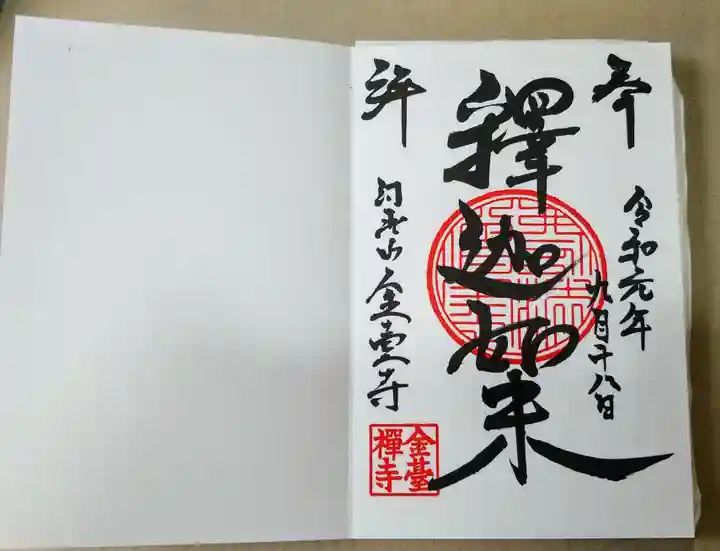 奉
令和元年
九月十八日
釋迦如来
拝
金臺寺
金臺
禪寺